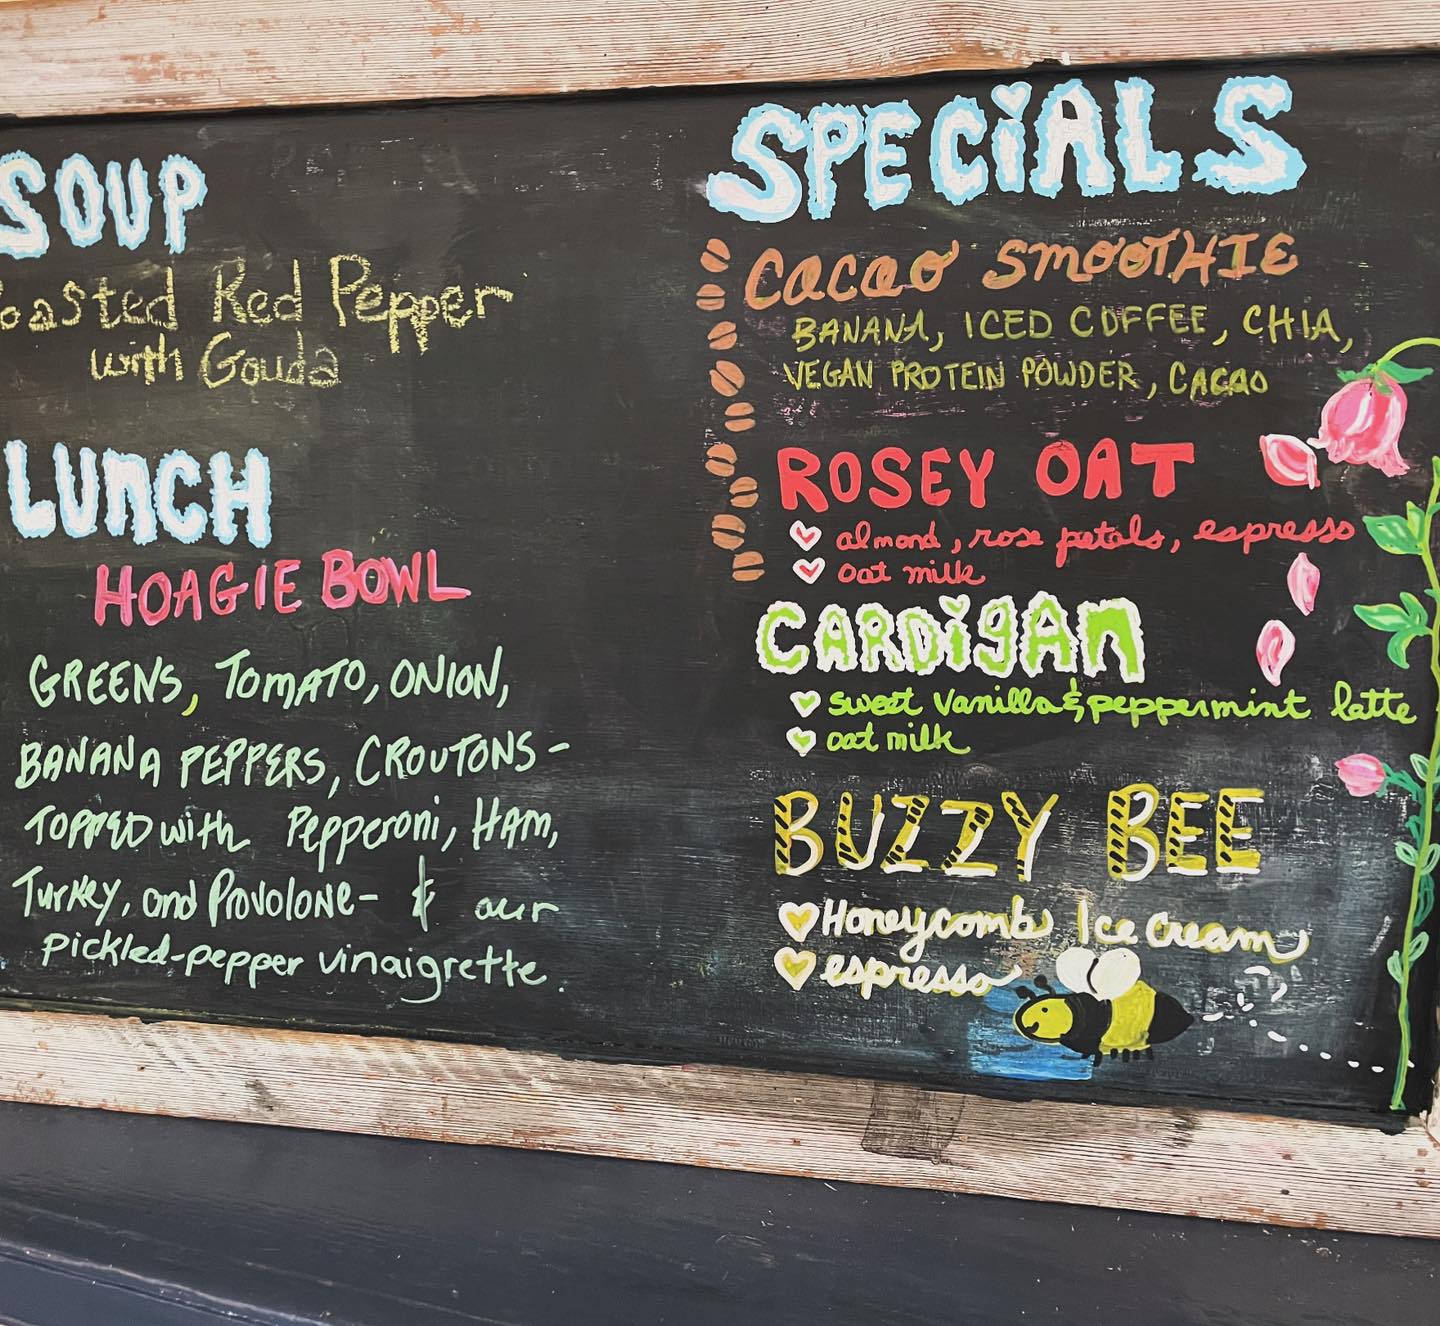 SOUP
Roasted Red Pepper
with Gouda
LUNCH
HOAGIE BOWL
GREENS, TOMATO, ONION,
BANANA PEPPERS, CROUTONS -
TOPPED with Pepperoni, HAM,
Turkey, and Provolone - & our
pickled-pepper vinaigrette.
SPECiALS
CACAO SMOOTHIE
BANANA, ICED COFFEE, CHIA,
VEGAN PROTEIN POWDER, CACAO
ROSEY OAT
almond, rose petals, espresso
oat milk
CARDigAn
sweet vanilla & peppermint latte
oat milk
BUZZY BEE
Honeycomb Ice Cream
espresso